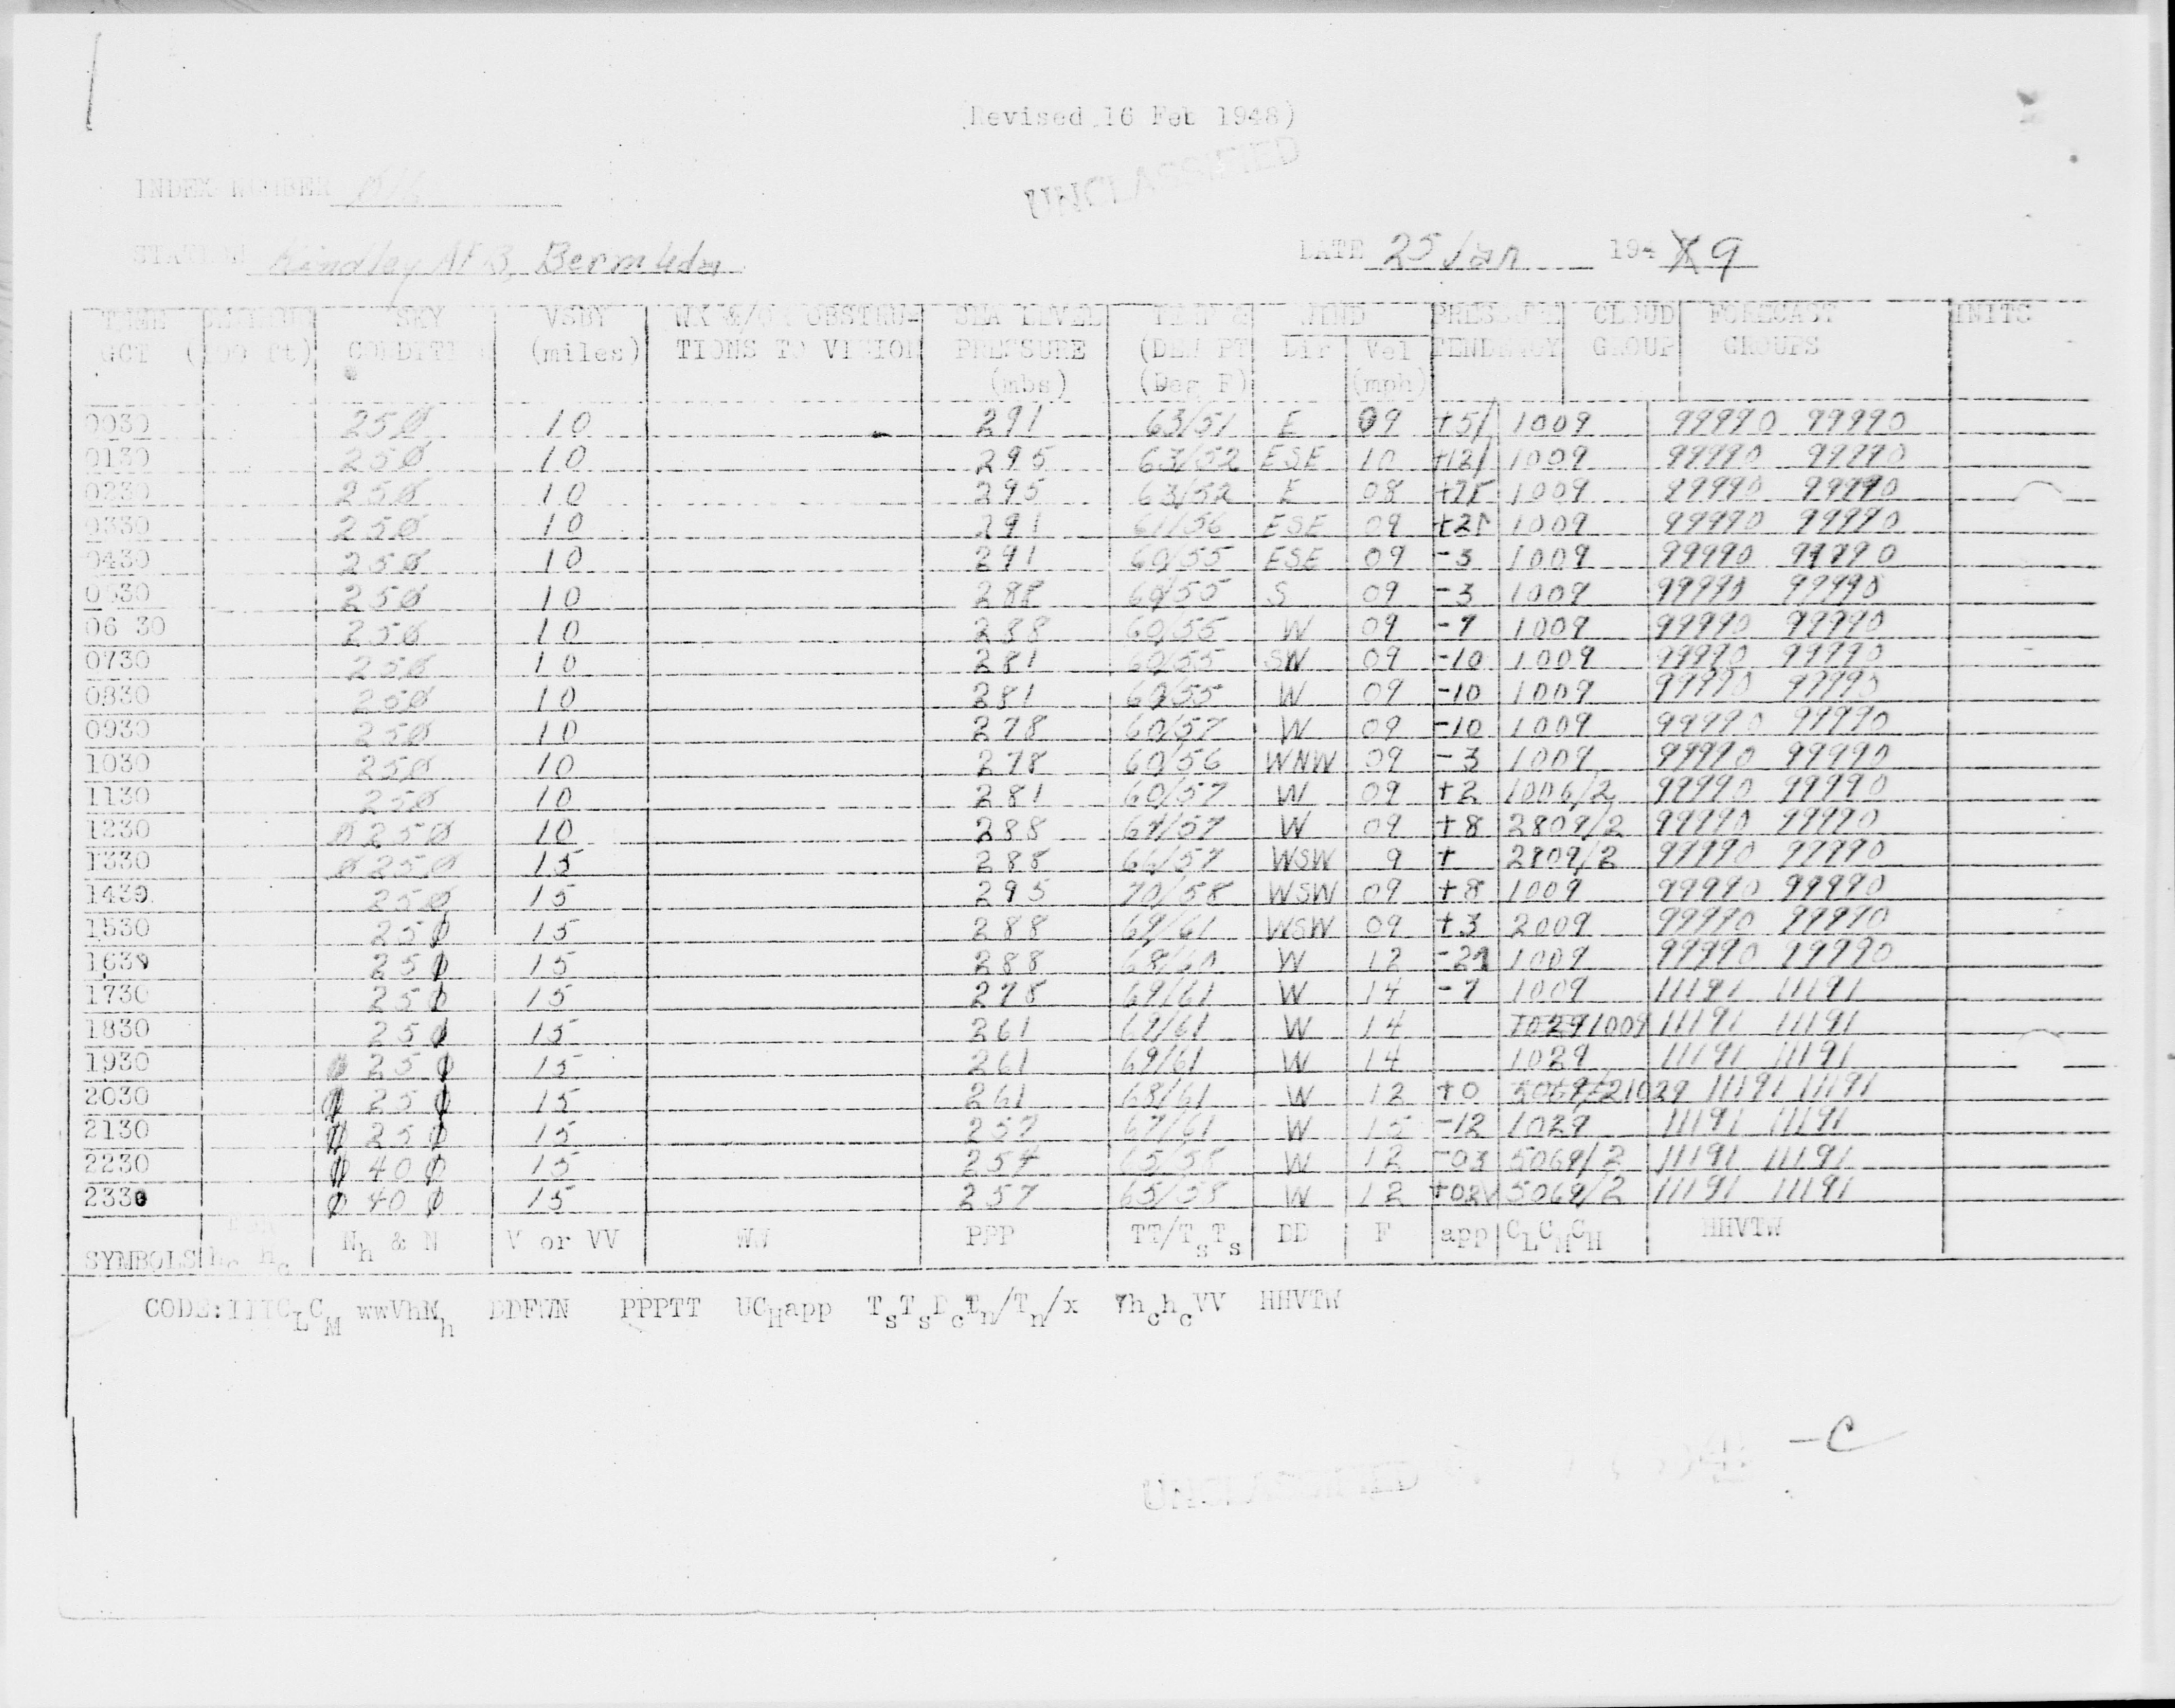 Revised 16 Feb 1948)
UNCLASSIFIED
INDEX NUMBER
STATION Kindley AFB, Bermuda
DATE 25 Jan 194 9
TIME SKY VSBY WX &/OR OBSTRU- SEA LEVEL TEMP & WIND PRESSURE CLOUD FORECAST INITS
GCT (100 ft) CONDITION (miles) TIONS TO VISION PRESSURE (DEW PT Dir Vel TENDENCY GROUP GROUPS
(mbs) (Deg F) (mph)
0030 250 10 291 63/51 E 09 +5/ 1009 99990 99990
0130 250 10 295 63/52 ESE 10 +12/ 1009 99990 99990
0230 250 10 295 63/52 E 08 1009 99990 99990
0330 250 10 291 61/56 ESE 09 1009 99990 99990
0430 250 10 291 60/55 ESE 09 -3 1009 99990 99990
0530 250 10 288 60/55 S 09 -3 1009 99990 99990
06 30 250 10 288 60/55 W 09 -7 1009 99990 99990
0730 250 10 281 60/55 SW 09 -10 1009 99990 99990
0830 250 10 281 60/55 W 09 -10 1009 99990 99990
0930 250 10 278 60/57 W 09 -10 1009 99990 99990
1030 250 10 278 60/56 WNW 09 -3 1009 99990 99990
1130 250 10 281 60/57 W 09 +2 1006/2 99990 99990
1230 Ø250Ø 10 288 W 09 +8 2809/2 99990 99990
1330 Ø250Ø 15 288 66/57 WSW 9 + 2809/2 99990 99990
1430 250 15 295 70/58 WSW 09 +8 1009 99990 99990
1530 250 15 288 69/61 WSW 09 +3 2009 99990 99990
1630 250 15 288 68/60 W 12 1009 99990 99990
1730 250 15 278 69/61 W 14 -7 1009 11191 11191
1830 250 15 261 69/61 W 14 1029 1009 11191 11191
1930 Ø 25 Ø 15 261 69/61 W 14 1029 11191 11191
2030 Ø 25 Ø 15 261 68/61 W 12 +0 5069/2 1029 11191 11191
2130 Ø 25 Ø 15 257 67/61 W 15 -12 1029 11191 11191
2230 Ø 40 Ø 15 254 65/58 W 12 -03 5069/2 11191 11191
2330 Ø 40 Ø 15 257 65/58 W 12 +02 5069/2 11191 11191
SYMBOLS hc hc Nh & N V or VV WW PPP TT/TsTs DD F app CLCMCH HHVTW
CODE: IIICLCM wwVhNh DDFWN PPPTT UCHapp TsTsDcTn/Tn/x 7hchcVV HHVTW
-C
UNCLASSIFIED